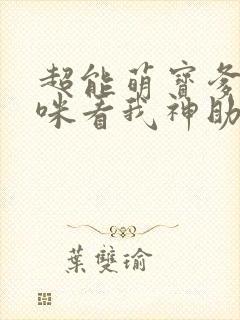 超能萌寶爹
咪看我神助
葉雙瑜